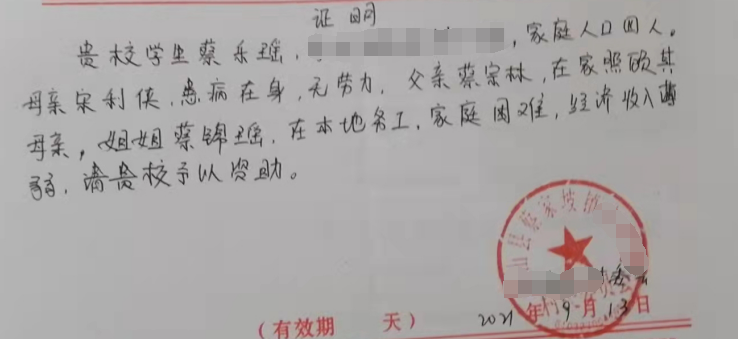 证明
贵校学生蔡乐瑶, ，家庭人口四人。
母亲宋利侠,患病在身,无劳力,父亲蔡宗林,在家照顾其
母亲,姐姐蔡锦瑶,在本地务工,家庭困难,经济收入薄
弱,请贵校予以资助。
(有效期 天) 2021年9月13日